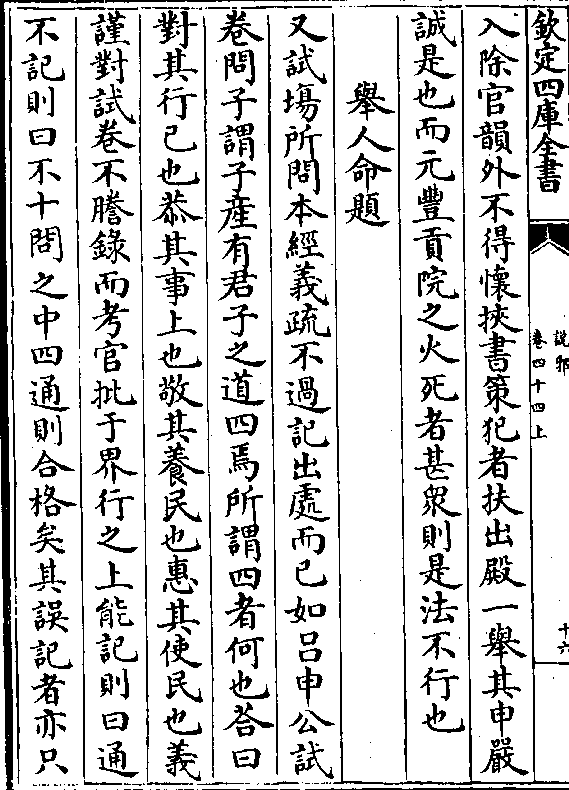 欽定四庫全書
說郛
卷四十四上
十六
入除官韻外不得懷挾書策犯者扶出殿一舉其申嚴
誠是也而元豐貢院之火死者甚衆則是法不行也
舉人命題
又試塲所問本經義疏不過記出處而已如吕申公試
卷問子謂子産有君子之道四焉所謂四者何也答曰
對其行已也恭其事上也敬其養民也惠其使民也義
謹對試卷不謄錄而考官批于界行之上能記則曰通
不記則曰不十問之中四通則合格矣其誤記者亦只